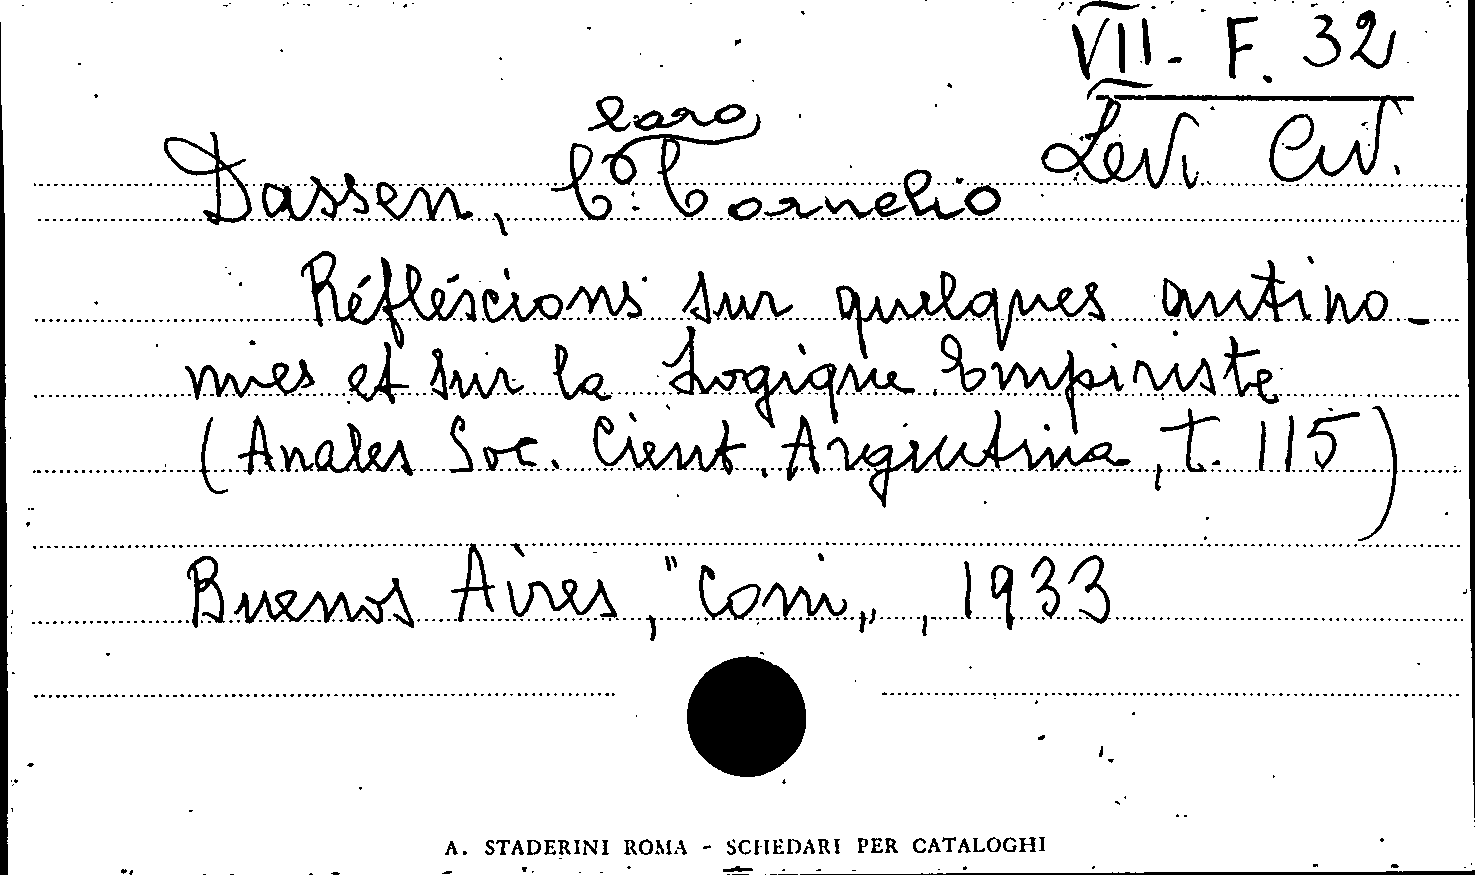 VII- F. 32
Levi Civ.
laro
Dassen, C. Cornelio
Réfléscions sur quelques antino-
mies et sur la Logique Empiriste
(Anales Soc. Cient. Argentina, t. 115)
Buenos Aires, "Coni„, 1933
A. STADERINI ROMA - SCHEDARI PER CATALOGHI